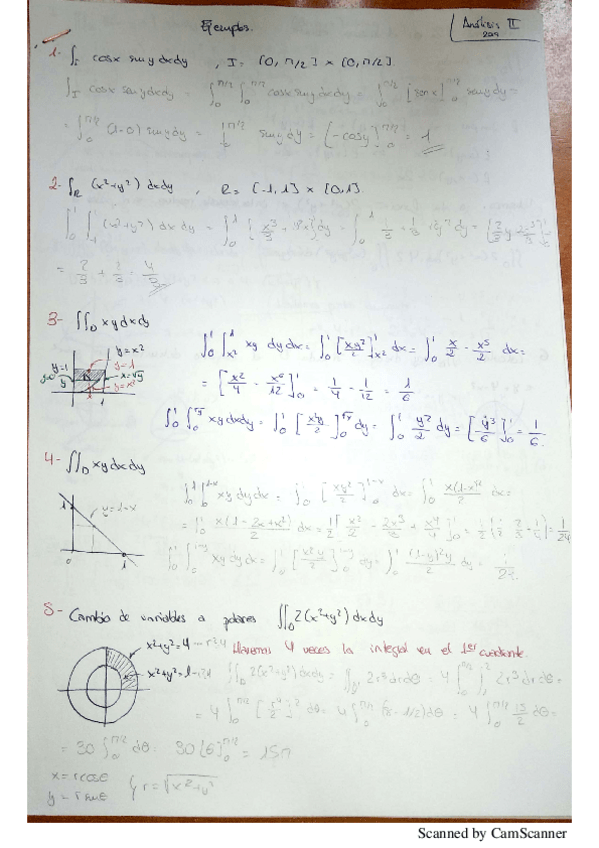 Ejemplos.
Análisis II
1- ∫_I cosx sin y dxdy , I = [0, π/2] × [0, π/2].
∫_I cosx sin y dxdy = ∫_0^{π/2} ∫_0^{π/2} cosx sin y dxdy = ∫_0^{π/2} [sen x]_0^{π/2} sin y dy =
= ∫_0^{π/2} (1-0) sin y dy = ∫_0^{π/2} sin y dy = [-cos y]_0^{π/2} = 1
2- ∫_R (x²+y²) dxdy , R = [-1,1] × [0,1].
∫_0^1 ∫_{-1}^1 (x²+y²) dx dy =
= 2/3 + 2/3 = 4/3
3- ∬_D xy dxdy
y=x²
y=1
y=1
x=√y
y=x²
1
∫_0^1 ∫_{x²}^1 xy dy dx = ∫_0^1 [xy²/2]_{x²}^1 dx = ∫_0^1 x/2 - x⁵/2 dx =
= [x²/4 - x⁶/12]_0^1 = 1/4 - 1/12 = 1/6
∫_0^1 ∫_0^{√y} xy dxdy = ∫_0^1 [x²y/2]_0^{√y} dy = ∫_0^1 y²/2 dy = [y³/6]_0^1 = 1/6.
4- ∬_D xy dxdy
1
y=1-x
0
1
∫_0^1 ∫_0^{1-x} xy dy dx = ∫_0^1 [xy²/2]_0^{1-x} dx = ∫_0^1 x(1-x)²/2 dx =
= ∫_0^1 x(1-2x+x²)/2 dx = 1/2 [x²/2 - 2x³/3 + x⁴/4]_0^1 = 1/2 (1/2 - 2/3 + 1/4) = 1/24
∫_0^1 ∫_0^{1-y} xy dx dy = ∫_0^1 [x²y/2]_0^{1-y} dy = ∫_0^1 (1-y)²y/2 dy = 1/24.
5- Cambio de variables a polares ∬_D 2(x²+y²) dxdy
x²+y²=4
x²+y²=1
Haremos 4 veces la integral en el 1er cuadrante.
∬_D 2(x²+y²) dxdy = 2r³ dr dθ = 4 ∫_0^{π/2} ∫_1^2 2r³ dr dθ =
= 4 ∫_0^{π/2} [r⁴/2]_1^2 dθ = 4 ∫_0^{π/2} (8 - 1/2) dθ = 4 ∫_0^{π/2} 15/2 dθ =
= 30 ∫_0^{π/2} dθ = 30 [θ]_0^{π/2} = 15π
x = r cosθ
y = r sinθ
r = √x²+y²
Scanned by CamScanner